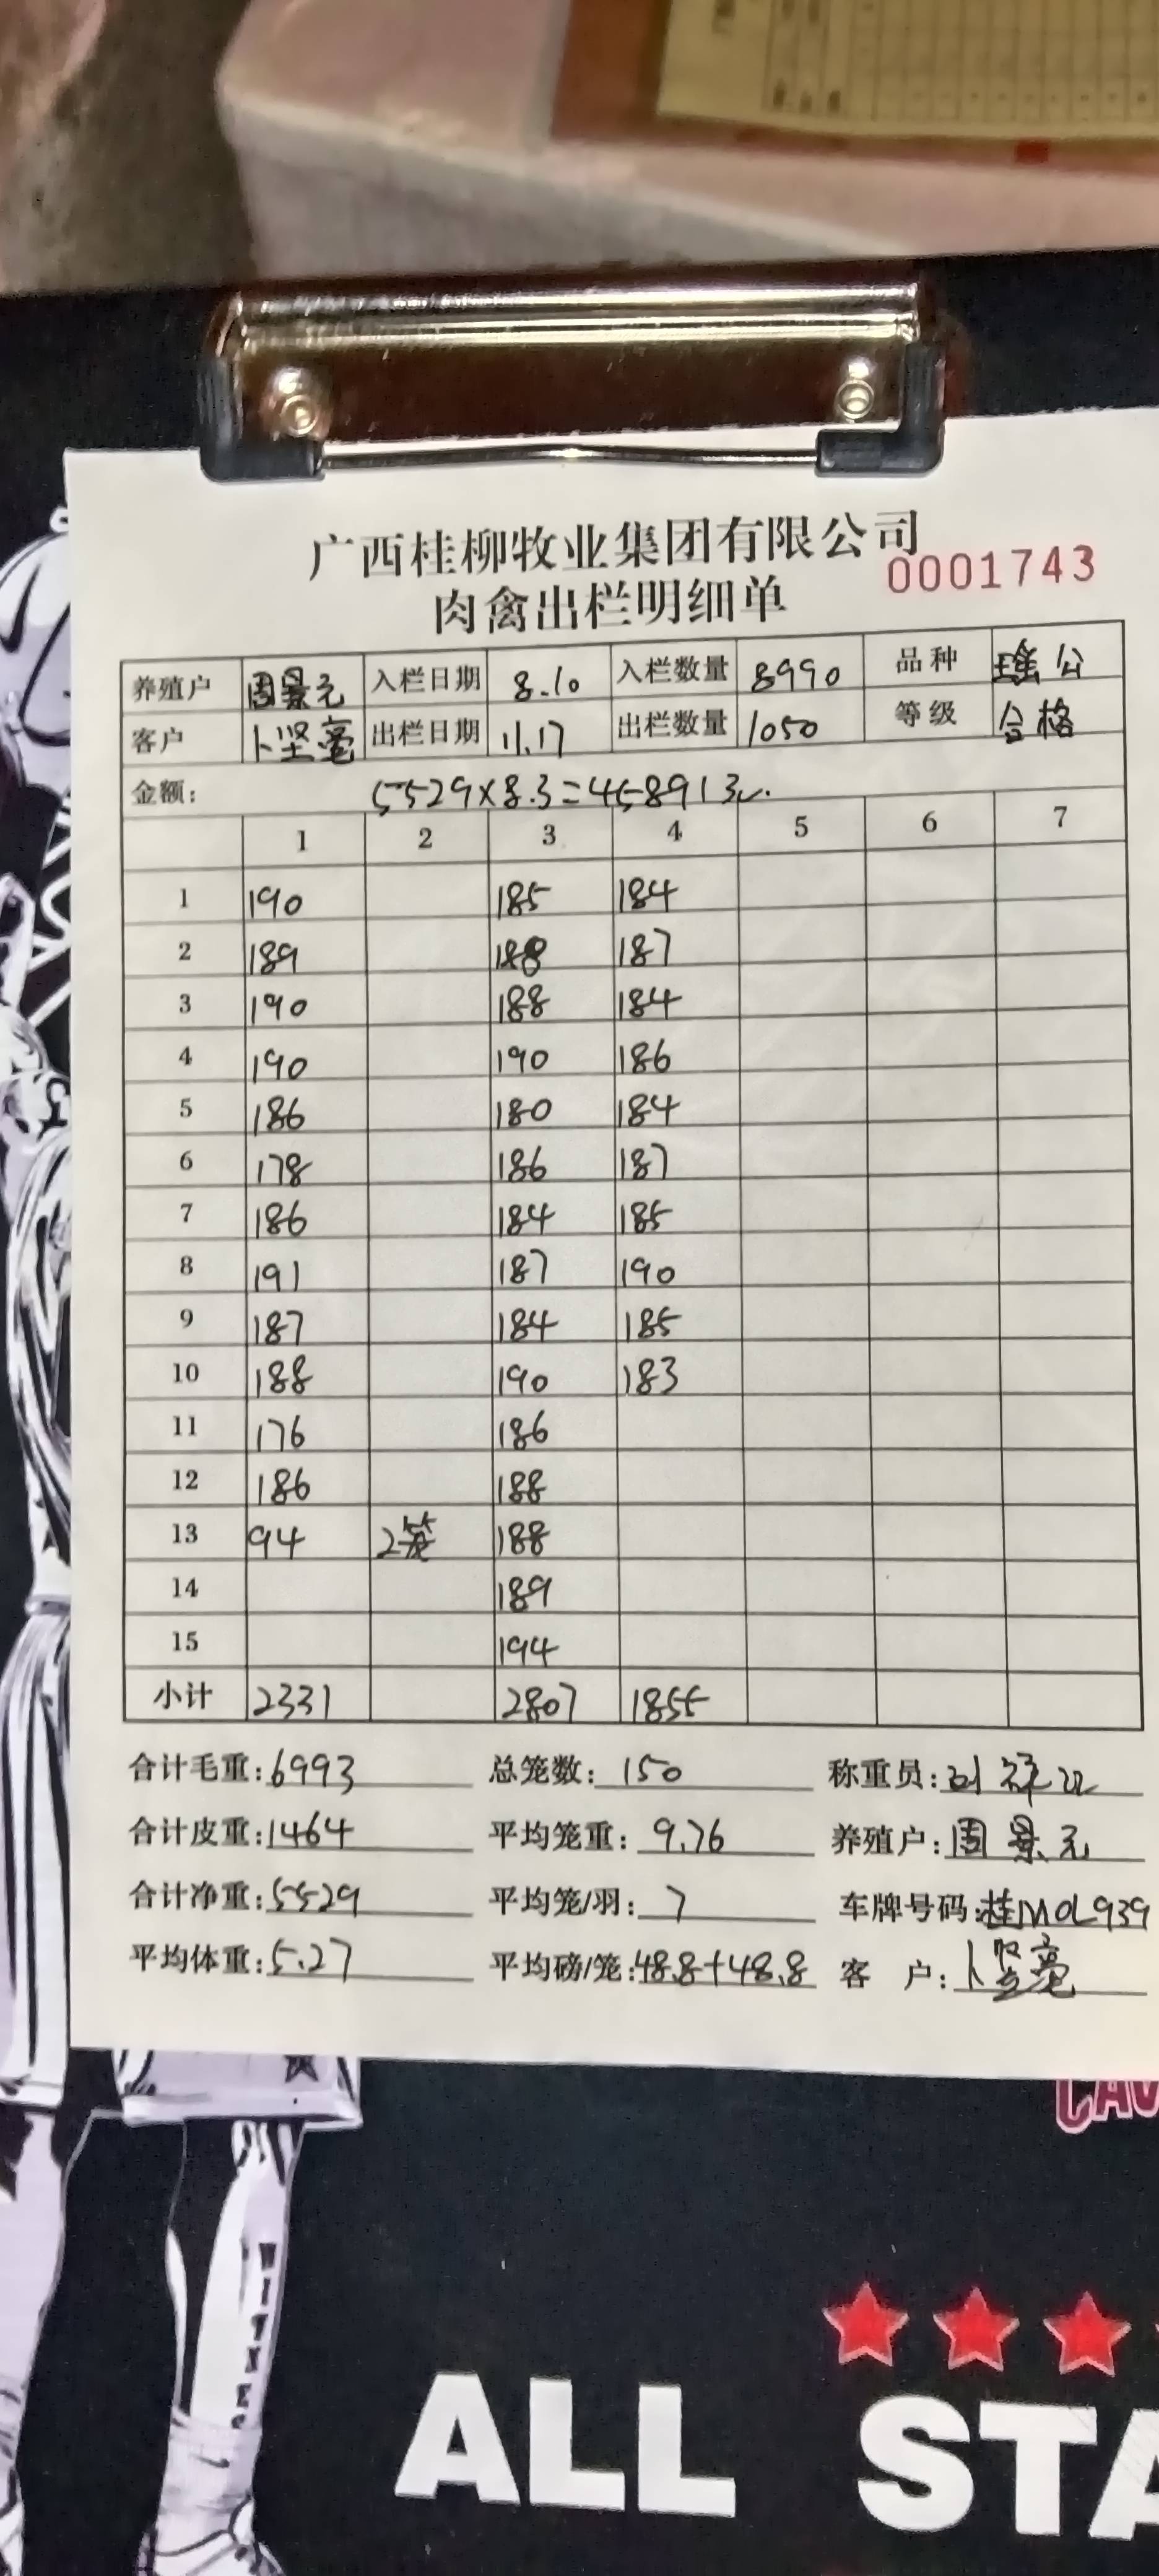 广西桂柳牧业集团有限公司
0001743
肉禽出栏明细单
养殖户 周景元 入栏日期 8.10 入栏数量 8990 品种 瑶公
客户 卜坚毫 出栏日期 11.17 出栏数量 1050 等级 合格
金额: 5529×8.3=45891元.
1 2 3 4 5 6 7
1 190 185 184
2 189 188 187
3 190 188 184
4 190 190 186
5 186 180 184
6 178 186 187
7 186 184 185
8 191 187 190
9 187 184 185
10 188 190 183
11 176 186
12 186 188
13 94 2笼 188
14 189
15 194
小计 2331 2807 1855
合计毛重:6993 总笼数:150 称重员:
合计皮重:1464 平均笼重:9.76 养殖户:周景元
合计净重:5529 平均笼/羽:7 车牌号码:桂M0L939
平均体重:5.27 平均磅/笼:48.8+48.8 客 户:卜坚毫
CAV
ALL STA